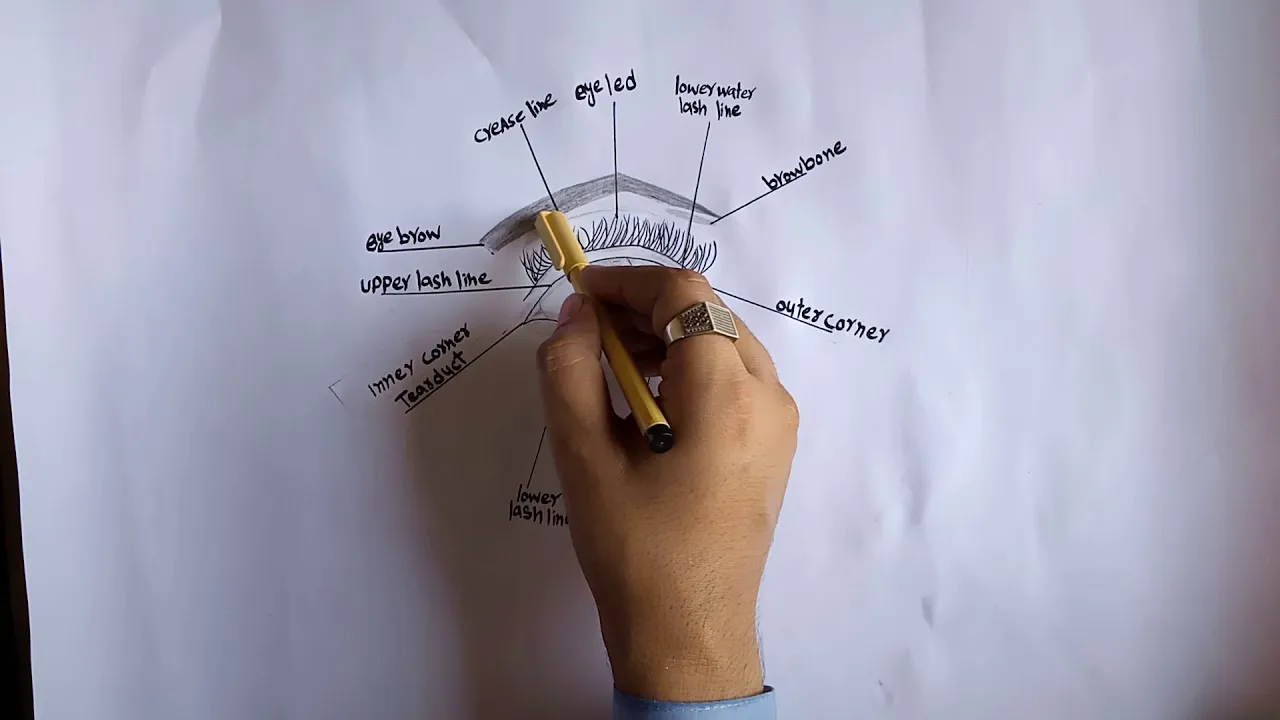 crease line
eyeled
lower water
lash line
browbone
eyebrow
upper lash line
outer corner
Inner corner
Tearduct
lower
lash line